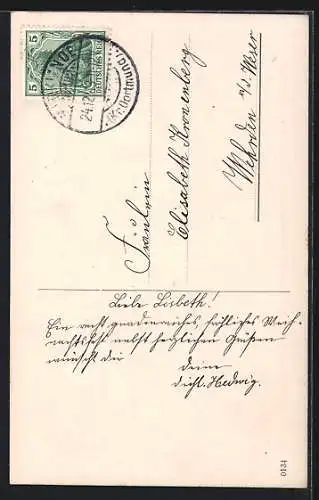 5
5
24.12.
(Kr. Dortmund)
Fräulein
Elisabeth Kronenberg
Wehrden a. d. Weser
Liebe Lisbeth!
Ein recht gnadenreiches, fröhliches Weih-
nachtsfest nebst herzlichen Grüßen
wünscht dir deine
dichl. Hedwig.
0134